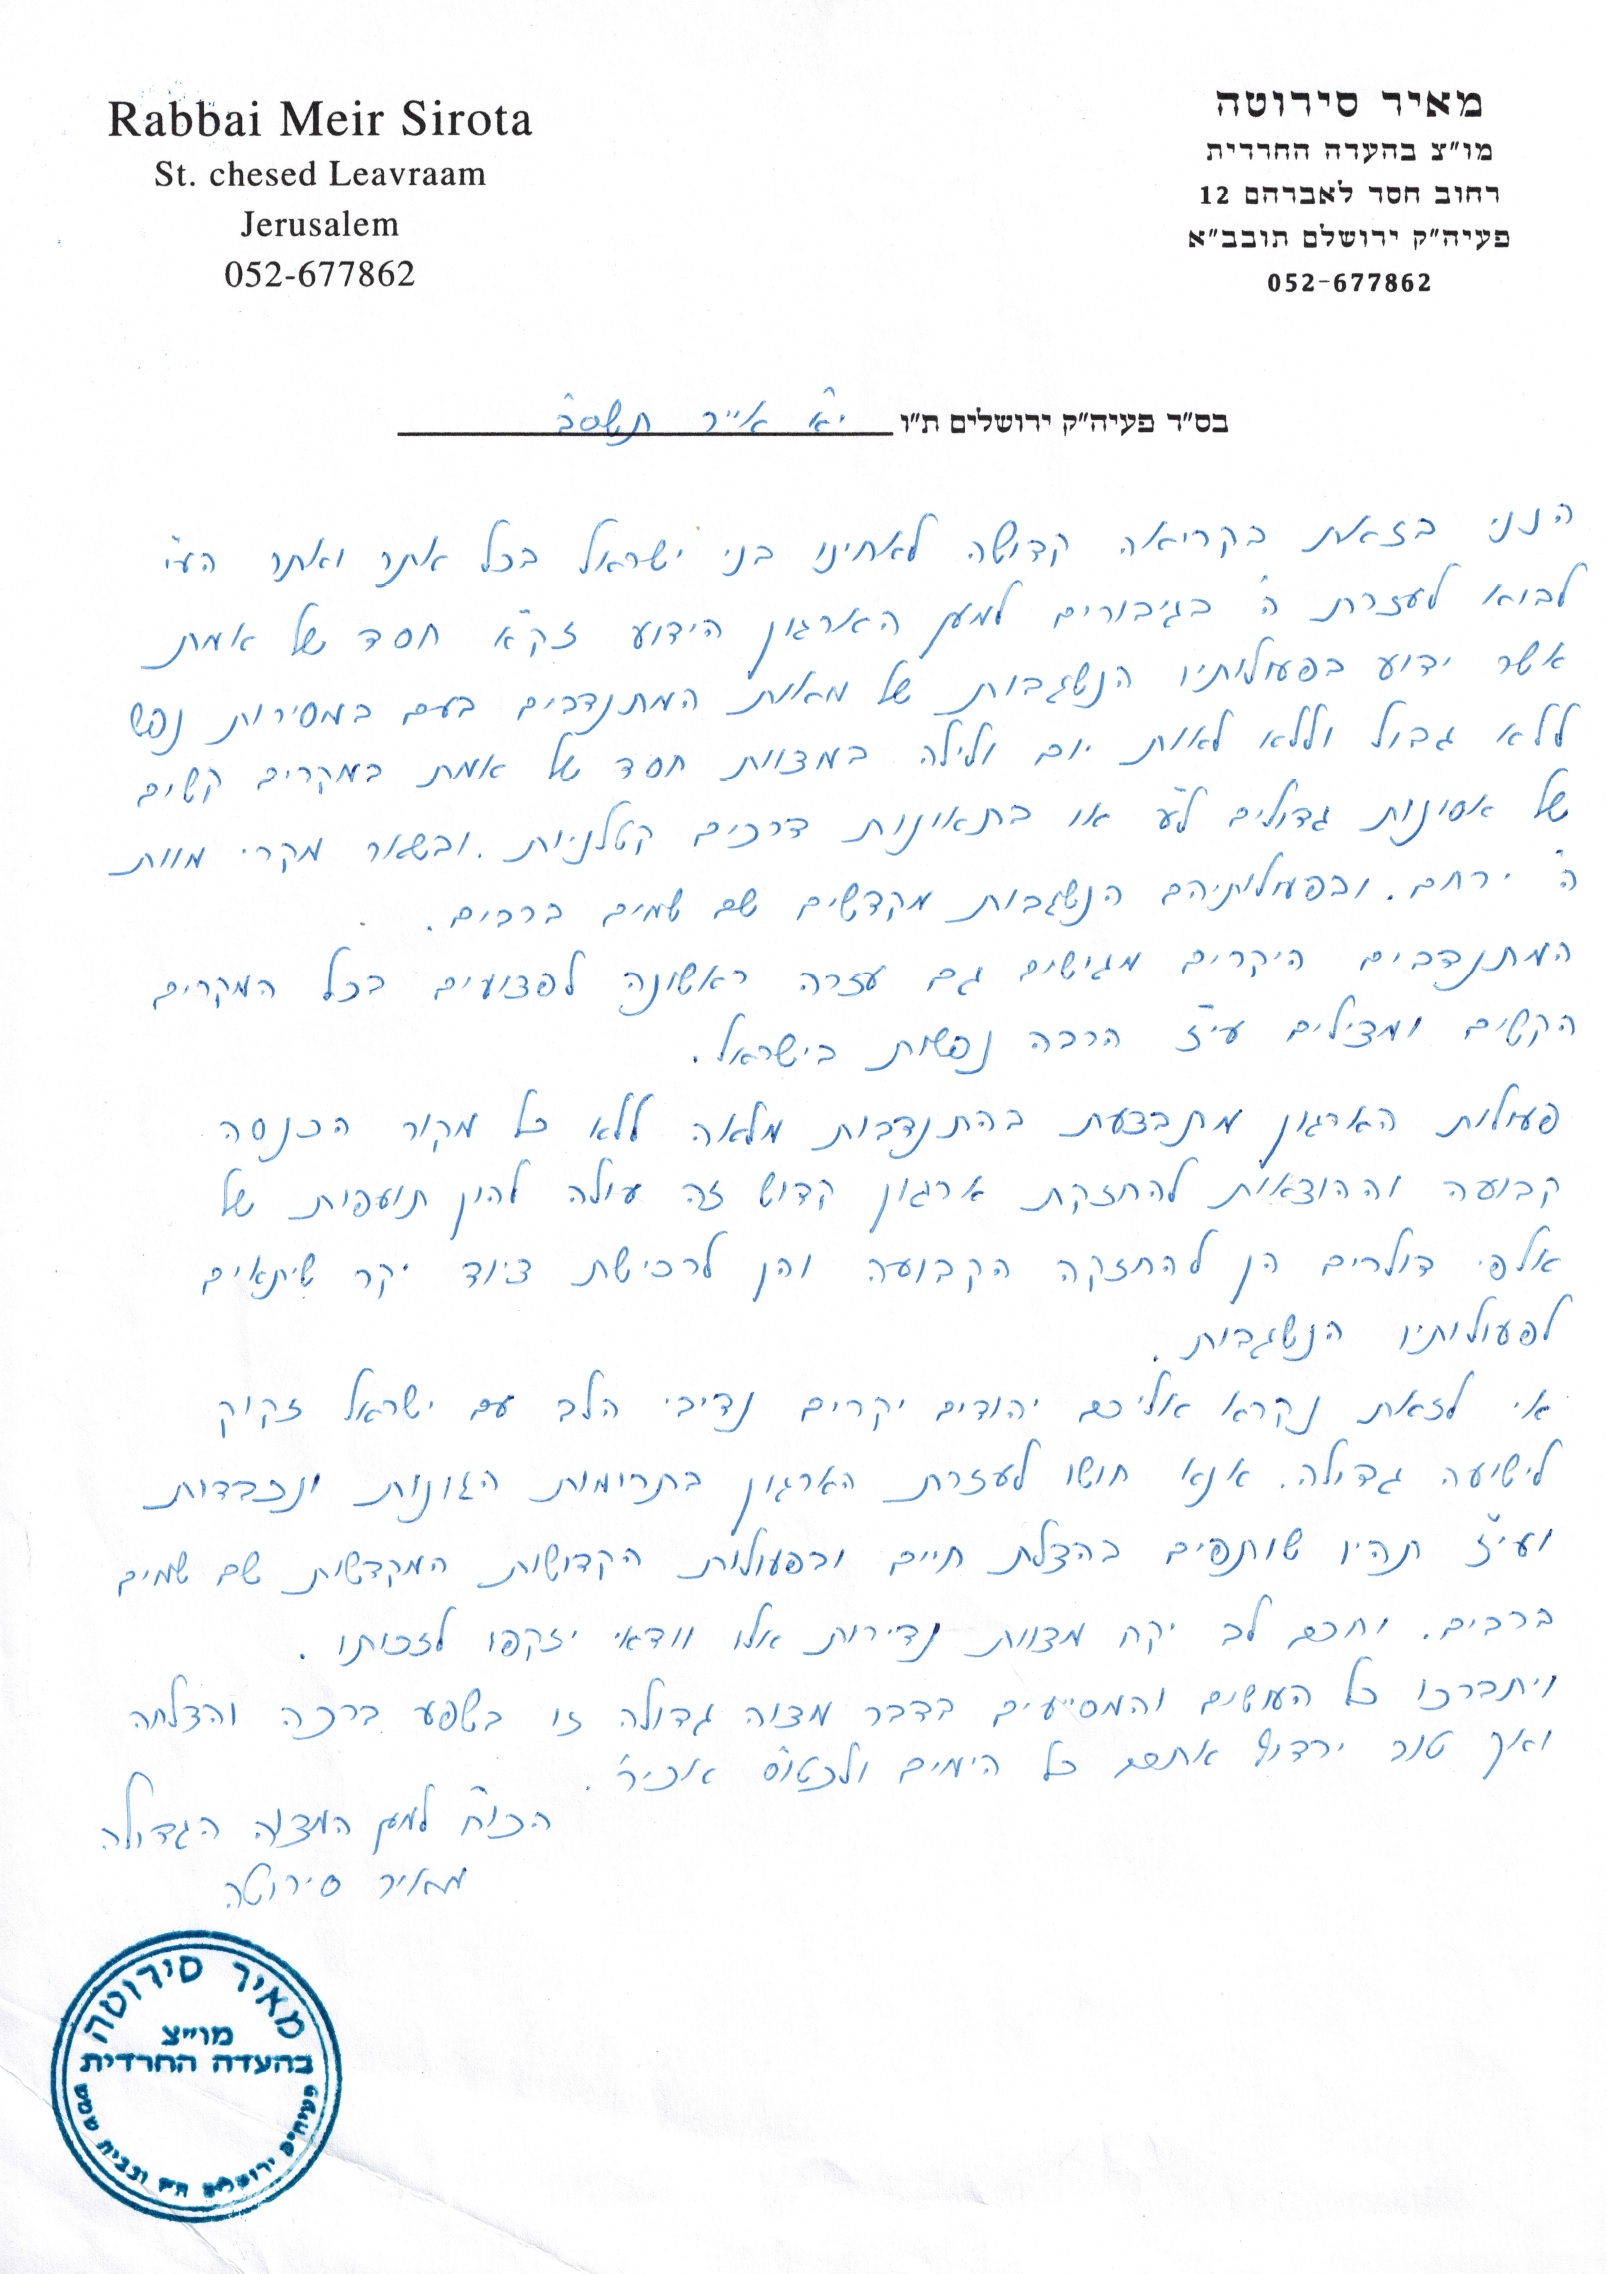 Rabbai Meir Sirota
St. chesed Leavraam
Jerusalem
052-677862
מאיר סירוטה
מו"צ בהעדה החרדית
רחוב חסד לאברהם 12
פעיה"ק ירושלם תובב"א
052-677862
בס"ד פעיה"ק ירושלים ת"ו י"א אייר תשס"ב
הנני בזאת בקריאה קדושה לאחינו בני ישראל בכל אתר ואתר הע"י
לבוא לעזרת ה' בגיבורים למען הארגון הידוע זק"א חסד של אמת
אשר ידוע בפעולותיו הנשגבות של מאות המתנדבים בעם במסירות נפש
ללא גבול וללא לאות יום ולילה במצוות חסד של אמת במקרים קשים
של אסונות גדולים ל"ע או בתאונות דרכים קטלניות. ובשאר מקרי מוות
ה' ירחם. ובפעולותיהם הנשגבות מקדשים שם שמים ברבים.
המתנדבים היקרים מגישים גם עזרה ראשונה לפצועים בכל המקרים
הקשים ומצילים עי"ז הרבה נפשות בישראל.
פעולות הארגון מתבצעת בהתנדבות מלאה ללא כל מקור הכנסה
קבועה וההוצאות להחזקת ארגון קדוש זה עולה להון תועפות של
אלפי דולרים הן להחזקה הקבועה והן לרכישת ציוד יקר שיתאים
לפעולותיו הנשגבות.
אי לזאת נקרא אליכם יהודים יקרים נדיבי הלב עם ישראל זקוק
לישועה גדולה. אנא חושו לעזרת הארגון בתרומות הגונות ונכבדות
ועי"ז תהיו שותפים בהצלת חיים ובפעולות הקדושות המקדשות שם שמים
ברבים. וחכם לב יקח מצוות נדירות אלו וודאי יזקפו לזכותו.
ויתברכו כל העושים והמסייעים בדבר מצוה גדולה זו בשפע ברכה והצלחה
ואך טוב ירדוף אתכם כל הימים ולכטו"ס אוכי"ר.
הכו"ח למען המצוה הגדולה
מאיר סירוטה
מאיר סירוטה
מו"צ
בהעדה החרדית